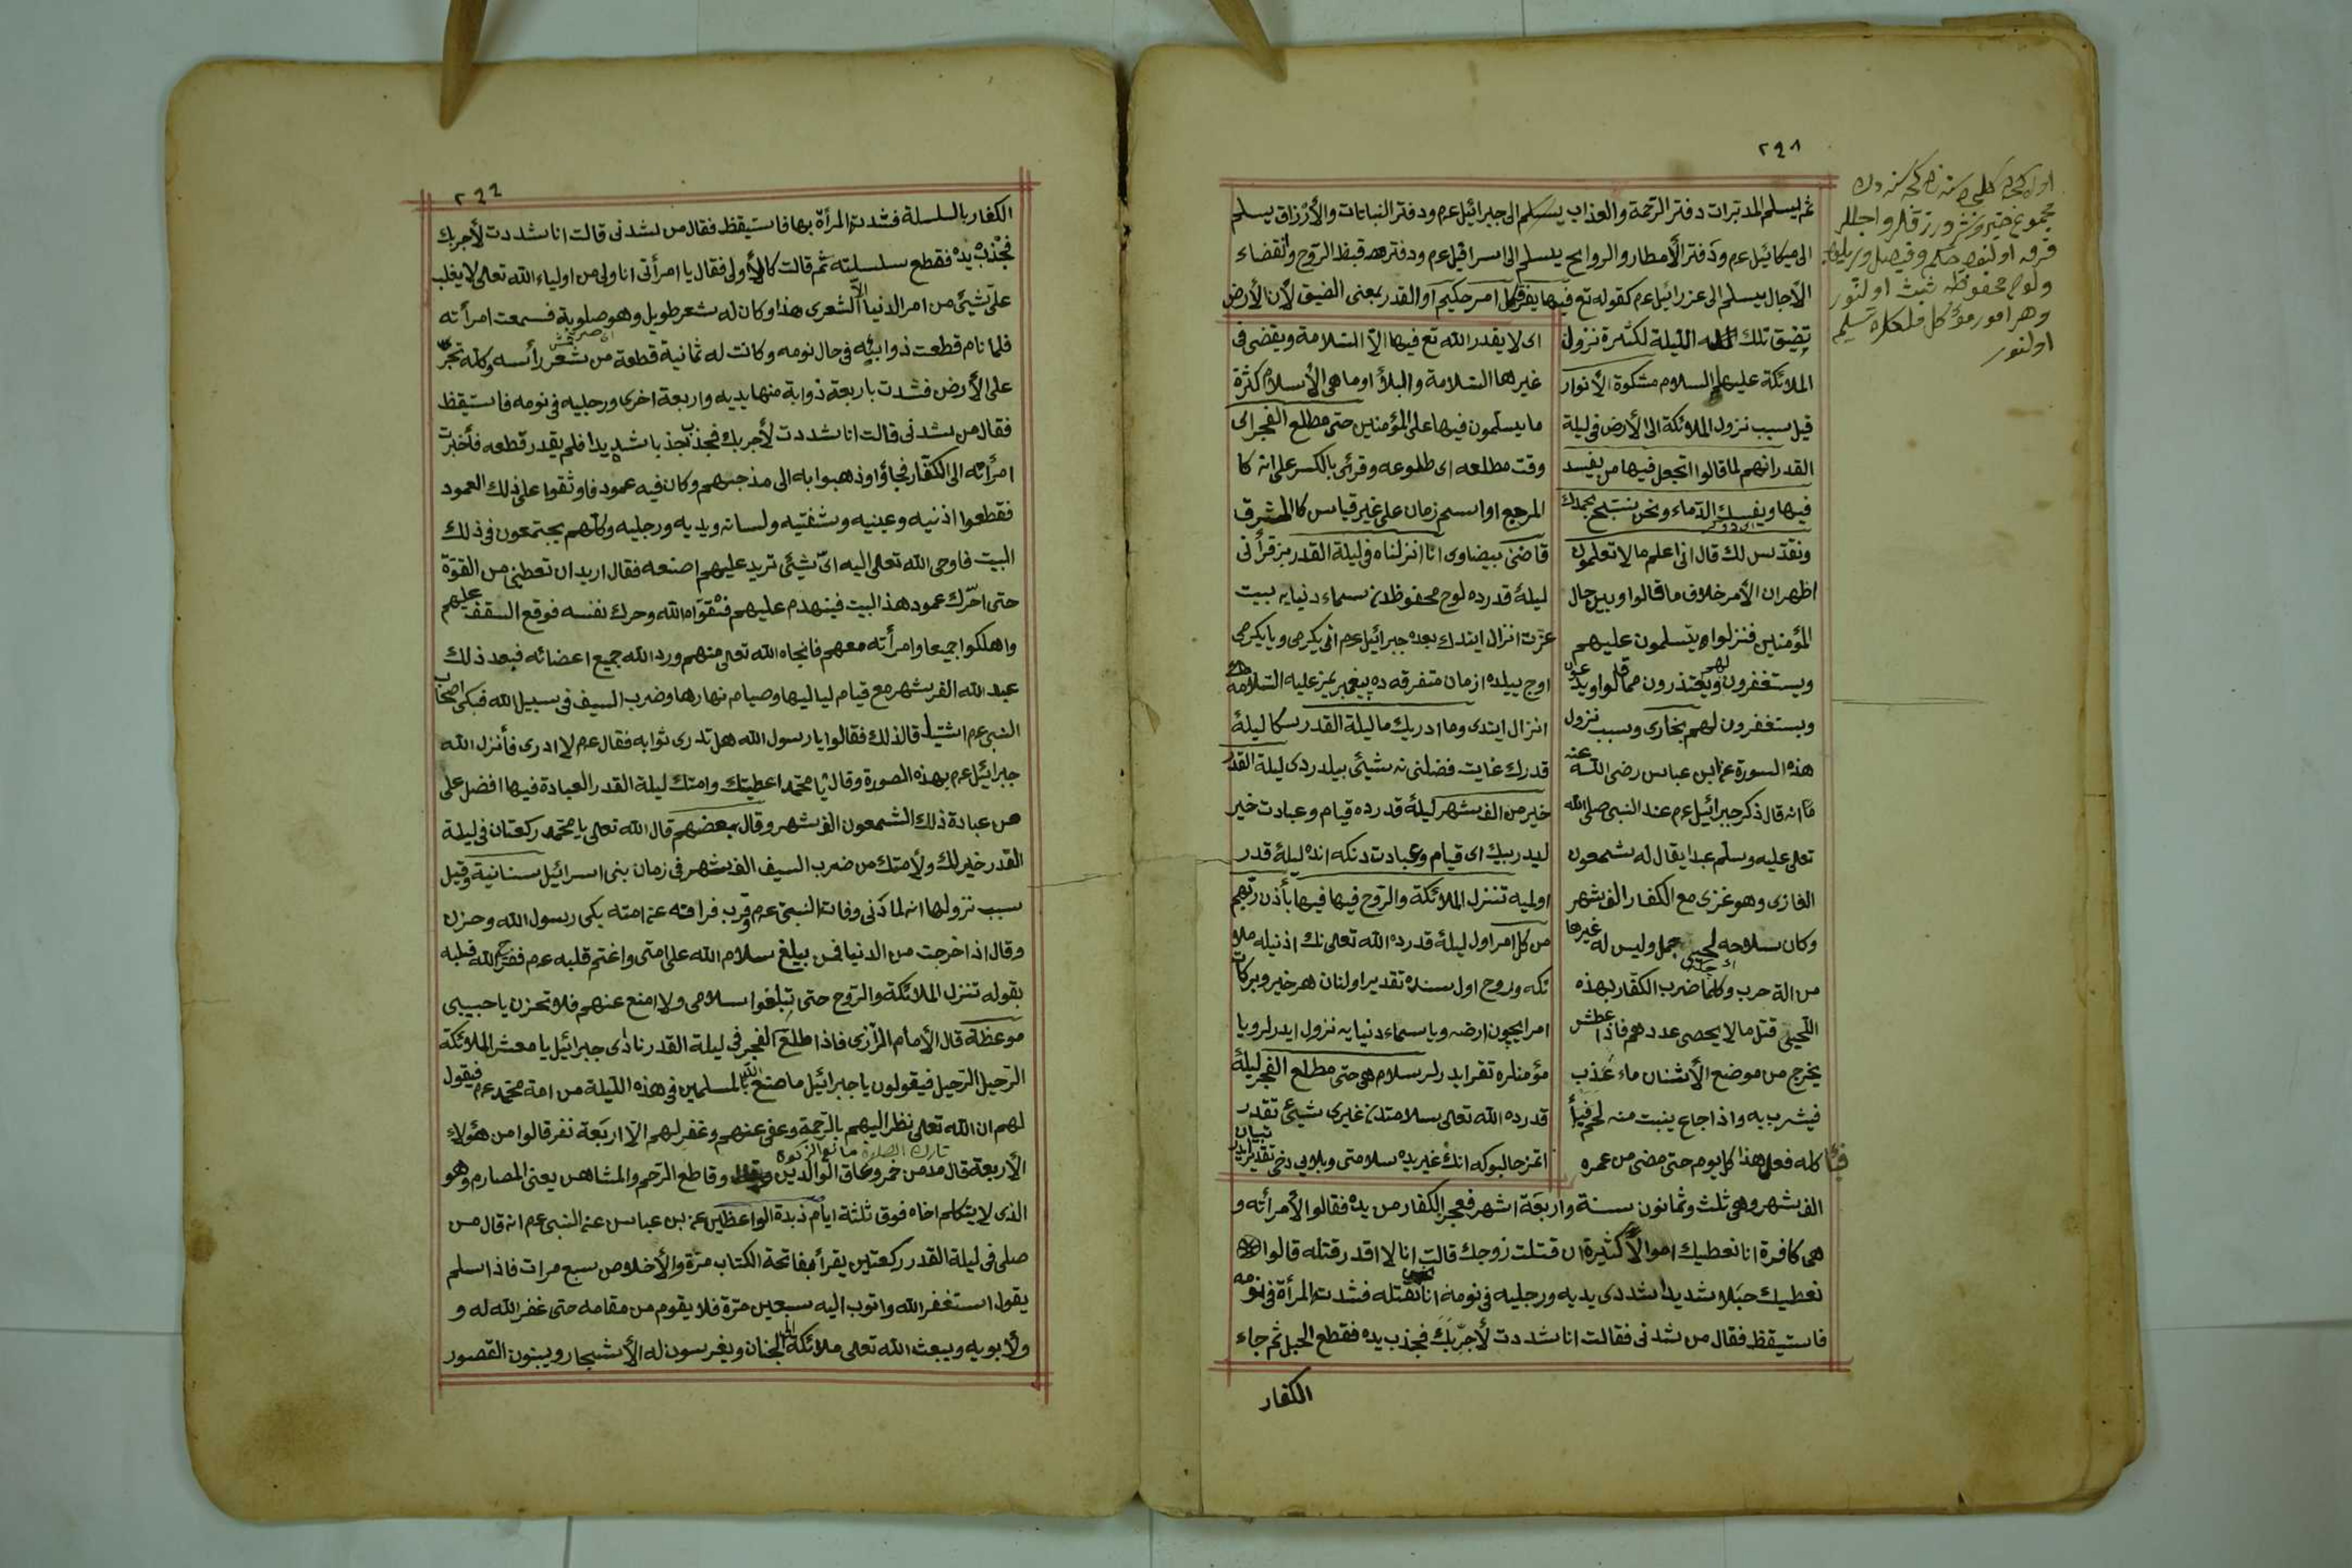 ٢٩٨
ثم يسلم المدبرات دفتر الرحمة والعذاب يسلم الى جبرائيل عم ودفتر النباتات والأرزاق يسلم
الى ميكائيل عم ودفتر الأمطار والروايح يسلم الى اسرافيل عم ودفتر قبض الروح وانقضاء
الآجال يسلم الى عزرائيل عم كقوله تع فيها يفرق كل امر حكيم او القدر بمعنى الضيق لأن الأرض
تضيق تلك الليلة لكثرة نزول
الملائكة عليهم السلام مشكوة الأنوار
قيل سبب نزول الملائكة الى الأرض فى ليلة
القدر انهم لما قالوا اتجعل فيها من يفسد
فيها ويفسك الدماء ونحن نسبح بحمدك
ونقدس لك قال انى اعلم ما لا تعلمون
اظهر ان الأمر خلاف ما قالوا وبين حال
المؤمنين فنزلوا ويسلمون عليهم
ويستغفرون لهم ويعتذرون مما قالوا
ويستغفرون لهم بخارى وسبب نزول
هذه السورة عن ابن عباس رضى الله عنه
انه قال ذكر جبرائيل عم عند النبى صلى الله
تعالى عليه وسلم عبدا يقال له شمعون
الغازى وهو غزى مع الكفار الف شهر
وكان سلاحه لحيى جمل وليس له غيرها
من الة حرب وكلما ضرب الكفار بهذه
اللحيى قتل ما لا يحصى عددهم فاذا عطش
يخرج من موضع الأسنان ماء عذب
فيشرب به واذا جاع ينبت منه لحم فيأ
كله فعل هذا كل يوم حتى مضى من عمره
اى لا يقدر الله تع فيها الا السلامة ويقضى فى
غيرها السلامة والبلاؤ او ما هى الا سلام كثرة
ما يسلمون فيها على المؤمنين حتى مطلع الفجر اى
وقت مطلعه اى طلوعه وقرئ بالكسر على انه كا
المرجع او اسم زمان على غير قياس كالمشرق
قاضى بيضاوى انا انزلناه فى ليلة القدر بز قرأنى
ليلۀ قدرده لوح محفوظدن سماء دنيايه بيت
عزت انزال ايتدك بعده جبرائيل عم انى يكرمى ويا يكرمى
اوج ييلده ازمان متفرقه ده پيغمبريمز عليه السلامه
انزال ايتدى وما ادريك ما ليلة القدر سكا ليلۀ
قدرك غايت فضلنى نه شيئى بيلدردى ليلة القدر
خير من الف شهر ليلۀ قدرده قيام وعبادت خير
ليدر بيك اى قيام وعبادتدن كه انده ليلۀ قدر
اولميه تنزل الملائكة والروح فيها بأذن ربهم
من كل امر اول ليلۀ قدرده الله تعالى نك اذنيله ملا
ئكه وروح اول سنده تقدير اولنان هر خير وبركات
امر ايچون ارضه ويا سماء دنيايه نزول ايدرلر ويا
مؤمنلره تقرب ايدرلر سلام هى حتى مطلع الفجر ليلۀ
قدرده الله تعالى سلامتدن غيرى شيئى تقدير
اتمز حالبوكه انك غيريده سلامتى وبلايى دخى تقدير ايدر
الف شهر وهى ثلث وثمانون سنة واربعة اشهر فعجز الكفار من يده فقالوا لأمرأته و
هى كافرة انا نعطيك اموالا كثيرة ان قتلت زوجك قالت انا لا اقدر قتله قالوا
نعطيك حبلا شديدا شددى يديه ورجليه فى نومه انا نقتله فشدت المرأة فى نومه
فاستيقظ فقال من شدنى فقالت انا شددت لأجربك فجذب يده فقطع الحبل ثم جاء
الكفار
٢٩٩
الكفار بالسلسلة فشدت المرأة بها فاستيقظ فقال من شدنى قالت انا شددت لأجربك
فجذب يده فقطع سلسلته ثم قالت كالأولى فقال يا امرأتى انا ولى من اولياء الله تعالى لا يغلب
على شيئ من امر الدنيا الا شعرى هذا وكان له شعر طويل وهو صلوبة فسمعت امرأته
فلما نام قطعت ذوابه فى حال نومه وكانت له ثمانية قطعة من شعر رأسه وكله تجر
على الأرض فشدت باربعة ذوابة منها يديه واربعة اخرى ورجليه فى نومه فاستيقظ
فقال من شدنى قالت انا شددت لأجربك فجذب جذبا شديدا فلم يقدر قطعه فأخبرت
امرأته الى الكفار فجاؤا وذهبوا به الى مذبحهم وكان فيه عمود فاوثقوا على ذلك العمود
فقطعوا اذنيه وعينيه وشفتيه ولسانه ويديه ورجليه وكلهم يجتمعون فى ذلك
البيت فاوحى الله تعالى اليه اى شيئ تريد عليهم اصنعه فقال اريد ان تعطينى من القوة
حتى احرك عمود هذا البيت فينهدم عليهم فقواه الله وحرك نفسه فوقع السقف عليهم
واهلكوا جميعا وامرأته معهم فانجاه الله تعالى منهم ورد الله جميع اعضائه فبعد ذلك
عبد الله الف شهر مع قيام لياليها وصيام نهارها وضرب السيف فى سبيل الله فبكى اصحاب
النبى عم اشتياقا لذلك فقالوا يا رسول الله هل تدرى ثوابه فقال عم لا ادرى فأنزل الله
جبرائيل عم بهذه الصورة وقال يا محمد اعطيتك وامتك ليلة القدر العبادة فيها افضل على
من عبادة ذلك الشمعون الف شهر وقال بعضهم قال الله تعالى يا محمد ركعتان فى ليلة
القدر خير لك ولأمتك من ضرب السيف الف شهر فى زمان بنى اسرائيل سنانية وقيل
سبب نزولها انه لما دنى وفات النبى عم وقرب فراقه عن امته بكى رسول الله وحزن
وقال اذا خرجت من الدنيا فمن يبلغ سلام الله على امتى واغتم قلبه عم ففرح الله قلبه
بقوله تنزل الملائكة والروح حتى تبلغوا سلامى ولا امنع عنهم فلا تحزن يا حبيبى
موعظة قال الأمام الرازى فاذا طلع الفجر فى ليلة القدر نادى جبرائيل يا معشر الملائكة
الرحيل الرحيل فيقولون يا جبرائيل ما صنع الله بالمسلمين فى هذه الليلة من امة محمد عم فيقول
لهم ان الله تعالى نظر اليهم بالرحمة وعفى عنهم وغفر لهم الا اربعة نفر قالوا من هؤلاء
تارك الصلوة مانع الزكوة
الأربعة قال مدمن خمر وعاق الوالدين وقاطع الرحم والمشاهن يعنى المصارم وهو
الذى لا يتكلم اخاه فوق ثلثة ايام زبدة الواعظين عن ابن عباس عن النبى عم انه قال من
صلى فى ليلة القدر ركعتين يقرأ بفاتحة الكتاب مرة والأخلاص سبع مرات فاذا سلم
يقول استغفر الله واتوب اليه سبعين مرة فلا يقوم من مقامه حتى غفر الله له و
ولأبويه ويبعث الله تعالى ملائكة الى الجنان ويغرسون له الأشجار ويبنون القصور